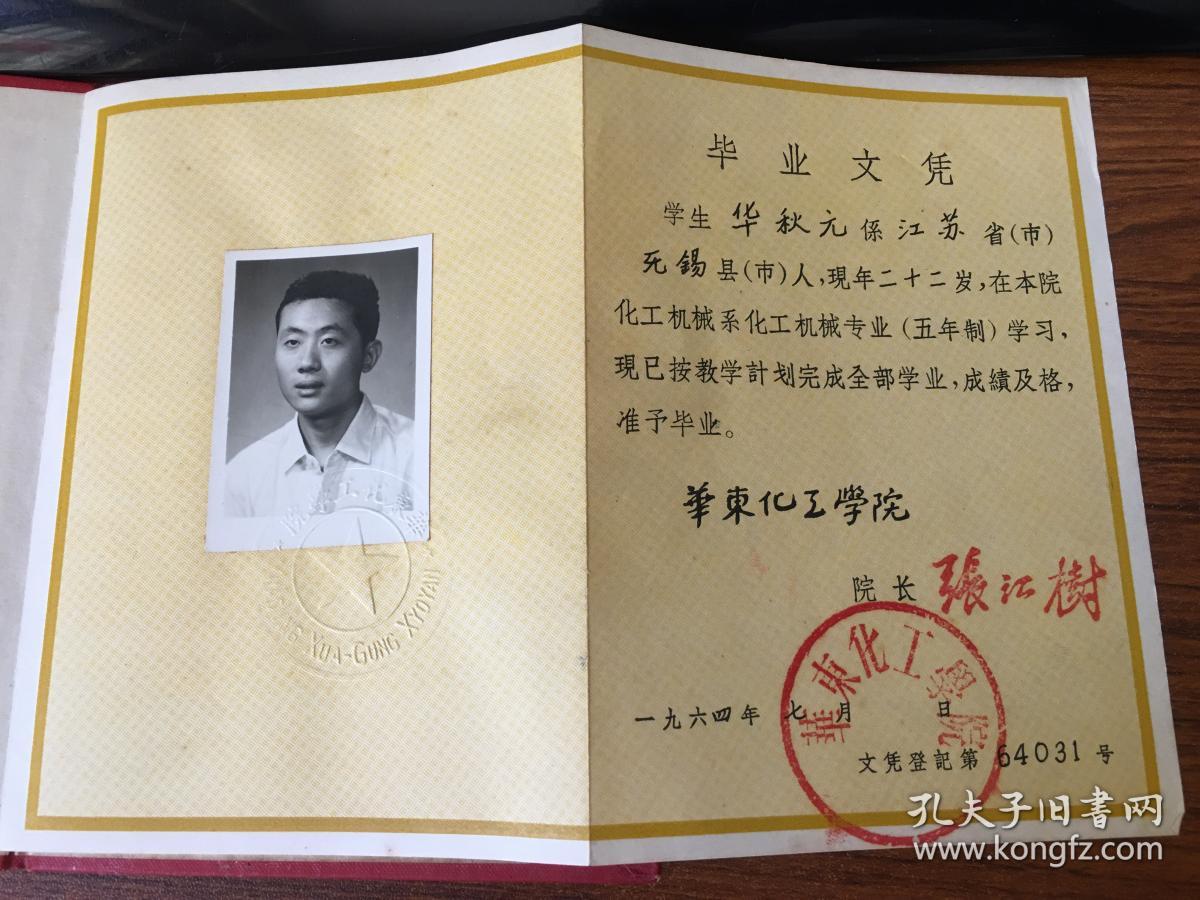 毕业文凭
学生 华秋元 係 江苏 省(市)
无錫 县(市)人,現年二十二岁,在本院
化工机械系化工机械专业(五年制)学习,
現已按教学計划完成全部学业,成績及格,
准予毕业。
華東化工學院
院长 張江樹
華東化工學院
一九六四年 七 月 日
文凭登記第 64031 号
XUA-GUNG XYOYAN
孔夫子旧书网
www.kongfz.com